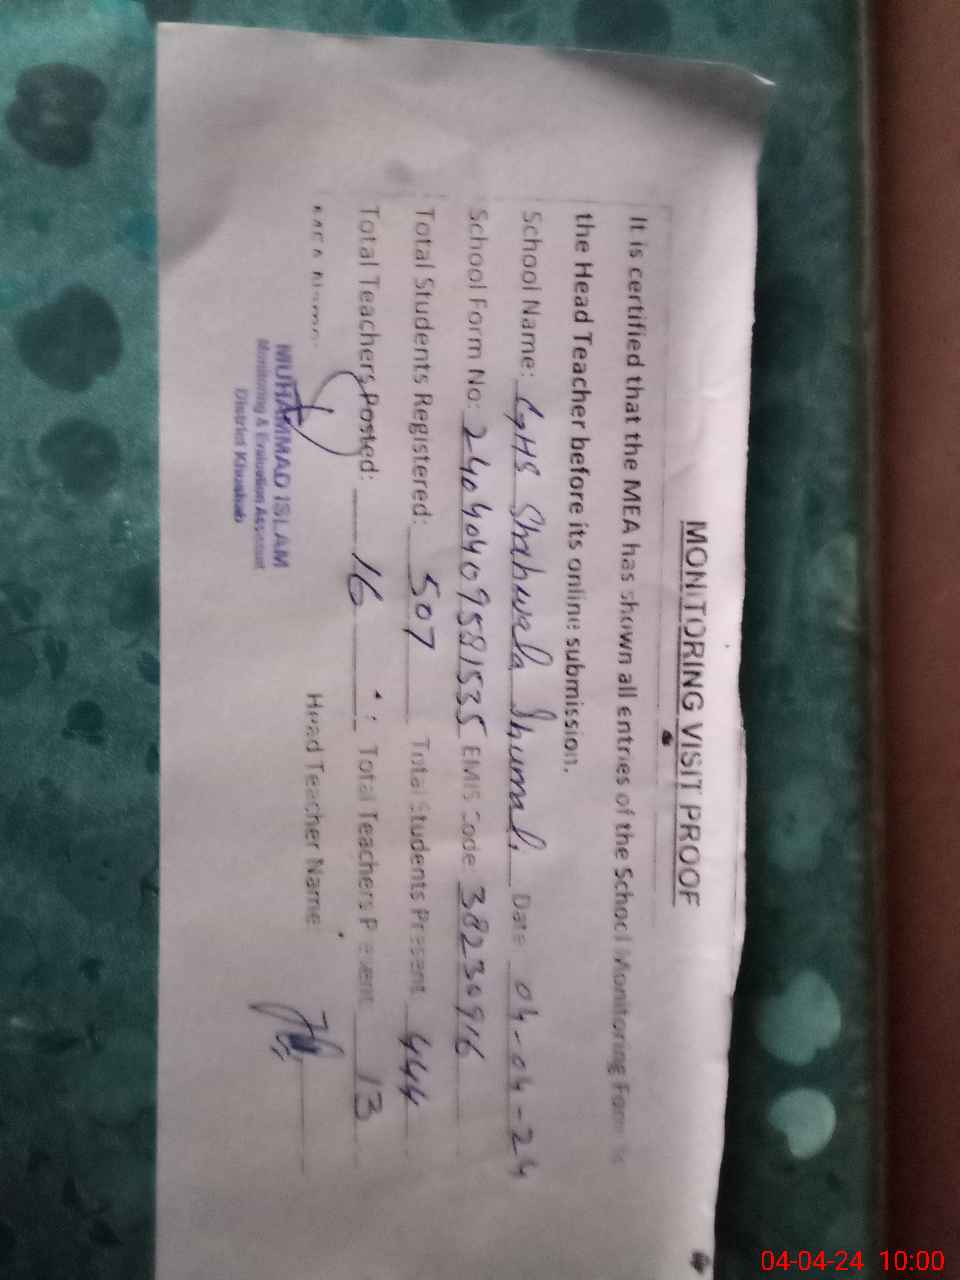 MONITORING VISIT PROOF
It is certified that the MEA has shown all entries of the School Monitoring Form to
the Head Teacher before its online submission.
School Name: GGHS Shahwala Shumali Date: 04-04-24
School Form No: 24040409581535 EMIS Code: 38230916
Total Students Registered: 507 Total Students Present 444
Total Teachers Posted: 16 Total Teachers Present 13
MEA Name: Head Teacher Name:
MUHAMMAD ISLAM
Monitoring & Evaluation Assistant
District Khushab
04-04-24 10:00